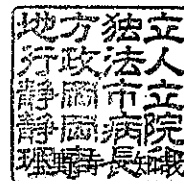 地方独立
行政法人
静岡市立
静岡病院
理事長